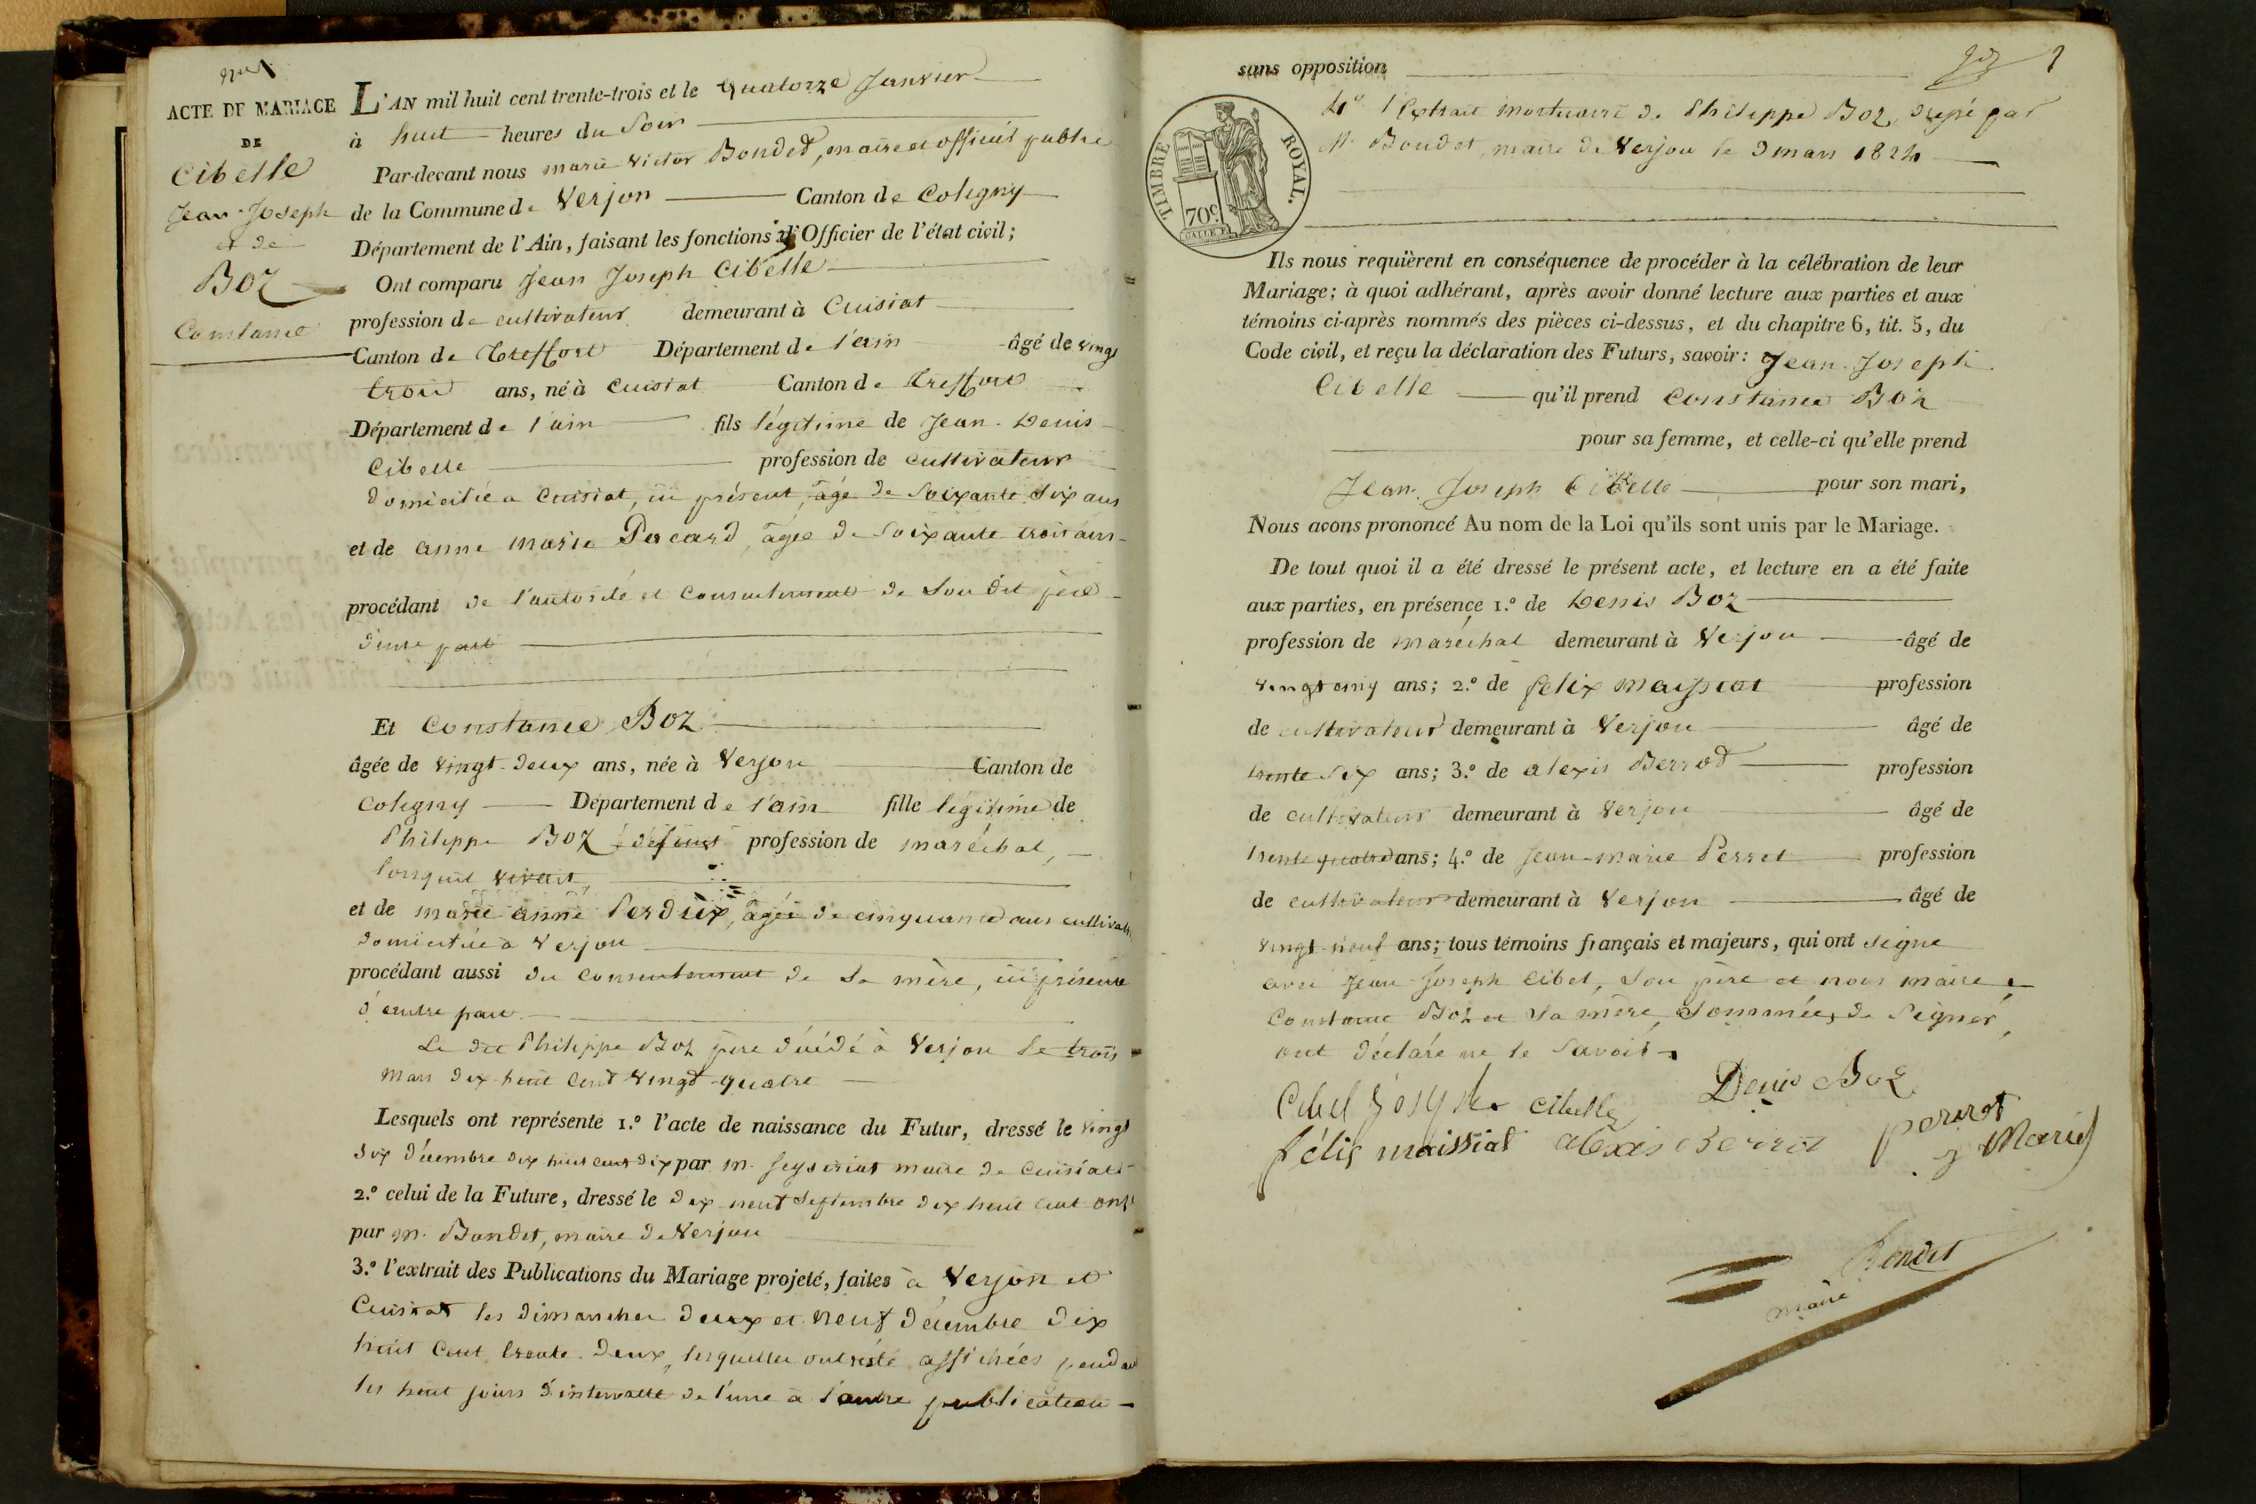 N.° 1
ACTE DE MARIAGE
DE
Cibelle
Jean-Joseph
et de
Boz
Constance
L'AN mil huit cent trente-trois et le quatorze Janvier
à huit heures du Soir
Par-devant nous marie victor Bondet, maire et officier public
de la Commune de Verjon Canton de Coligny
Département de l'Ain, faisant les fonctions d'Officier de l'état civil;
Ont comparu Jean Joseph Cibelle
profession de cultivateur demeurant à Cuisiat
Canton de Treffort Département de l'ain âgé de vingt
trois ans, né à Cuisiat Canton de Treffort
Département de l'ain fils légitime de Jean-Denis
Cibelle profession de cultivateur
domicilié a Cuisiat, ici présent, âgé de soixante six ans
et de anne marie Pacard, agée de soixante trois ans
procédant de l'autorité et consentement de son dit père
d'une part
Et Constance Boz
âgée de vingt-deux ans, née à Verjon Canton de
Coligny Département de l'ain fille légitime de
Philippe Boz défunt profession de maréchal,
lorsquil vivait,
et de marie anne Perdrix, âgée de cinquante ans cultivat
domiciliée à Verjon
procédant aussi du consentement de sa mère, ici présente
d'autre part.
Le dit Philippe Boz père décédé à Verjon le trois
mars dix-huit cent vingt-quatre
Lesquels ont représenté 1.° l'acte de naissance du Futur, dressé le vingt
six décembre dix huit cent dix par m. maire de Cuisiat
2.° celui de la Future, dressé le dix neuf Septembre dix huit cent onze
par m. Bondet, maire de Verjon
3.° l'extrait des Publications du Mariage projeté, faites à Verjon et
Cuisiat les dimanches deux et neuf décembre dix
huit cent trente-deux, lesquelles ont resté affichées pendant
les huit jours d'intervalle de l'une à l'autre publication
sans opposition
TIMBRE ROYAL.
70c.
4° l'extrait mortuaire de Philippe Boz, par
M. Bondet, maire de Verjon le 3 mars 1824
Ils nous requièrent en conséquence de procéder à la célébration de leur
Mariage; à quoi adhérant, après avoir donné lecture aux parties et aux
témoins ci-après nommés des pièces ci-dessus, et du chapitre 6, tit. 5, du
Code civil, et reçu la déclaration des Futurs, savoir: Jean-Joseph
Cibelle qu'il prend Constance Boz
pour sa femme, et celle-ci qu'elle prend
Jean-Joseph Cibelle pour son mari,
Nous avons prononcé Au nom de la Loi qu'ils sont unis par le Mariage.
De tout quoi il a été dressé le présent acte, et lecture en a été faite
aux parties, en présence 1.° de Denis Boz
profession de maréchal demeurant à Verjon âgé de
vingt cinq ans; 2.° de felix maissiat profession
de cultivateur demeurant à Verjon âgé de
trente six ans; 3.° de alexis Berrod profession
de cultivateur demeurant à Verjon âgé de
trente quatre ans; 4.° de Jean-marie Perret profession
de cultivateur demeurant à Verjon âgé de
vingt-neuf ans; tous témoins français et majeurs, qui ont signé
avec Jean-Joseph Cibel, son père et nous maire
Constance Boz et sa mère, sommées de signer,
ont déclaré ne le savoir
Cibel Joseph cibelle Denis Boz
félix maissiat alexis Berrod perret
j Marie
Bondet
maire